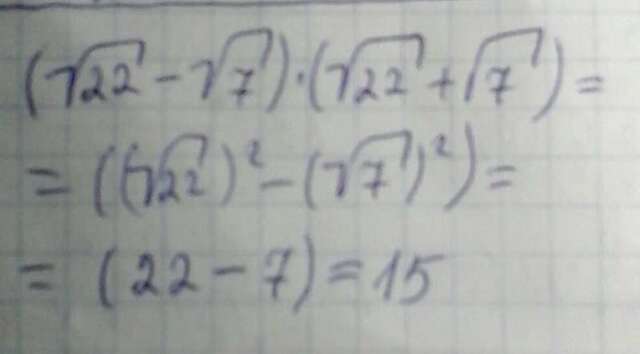 (√22 - √7)·(√22 + √7) =
= ((√22)² - (√7)²) =
= (22 - 7) = 15